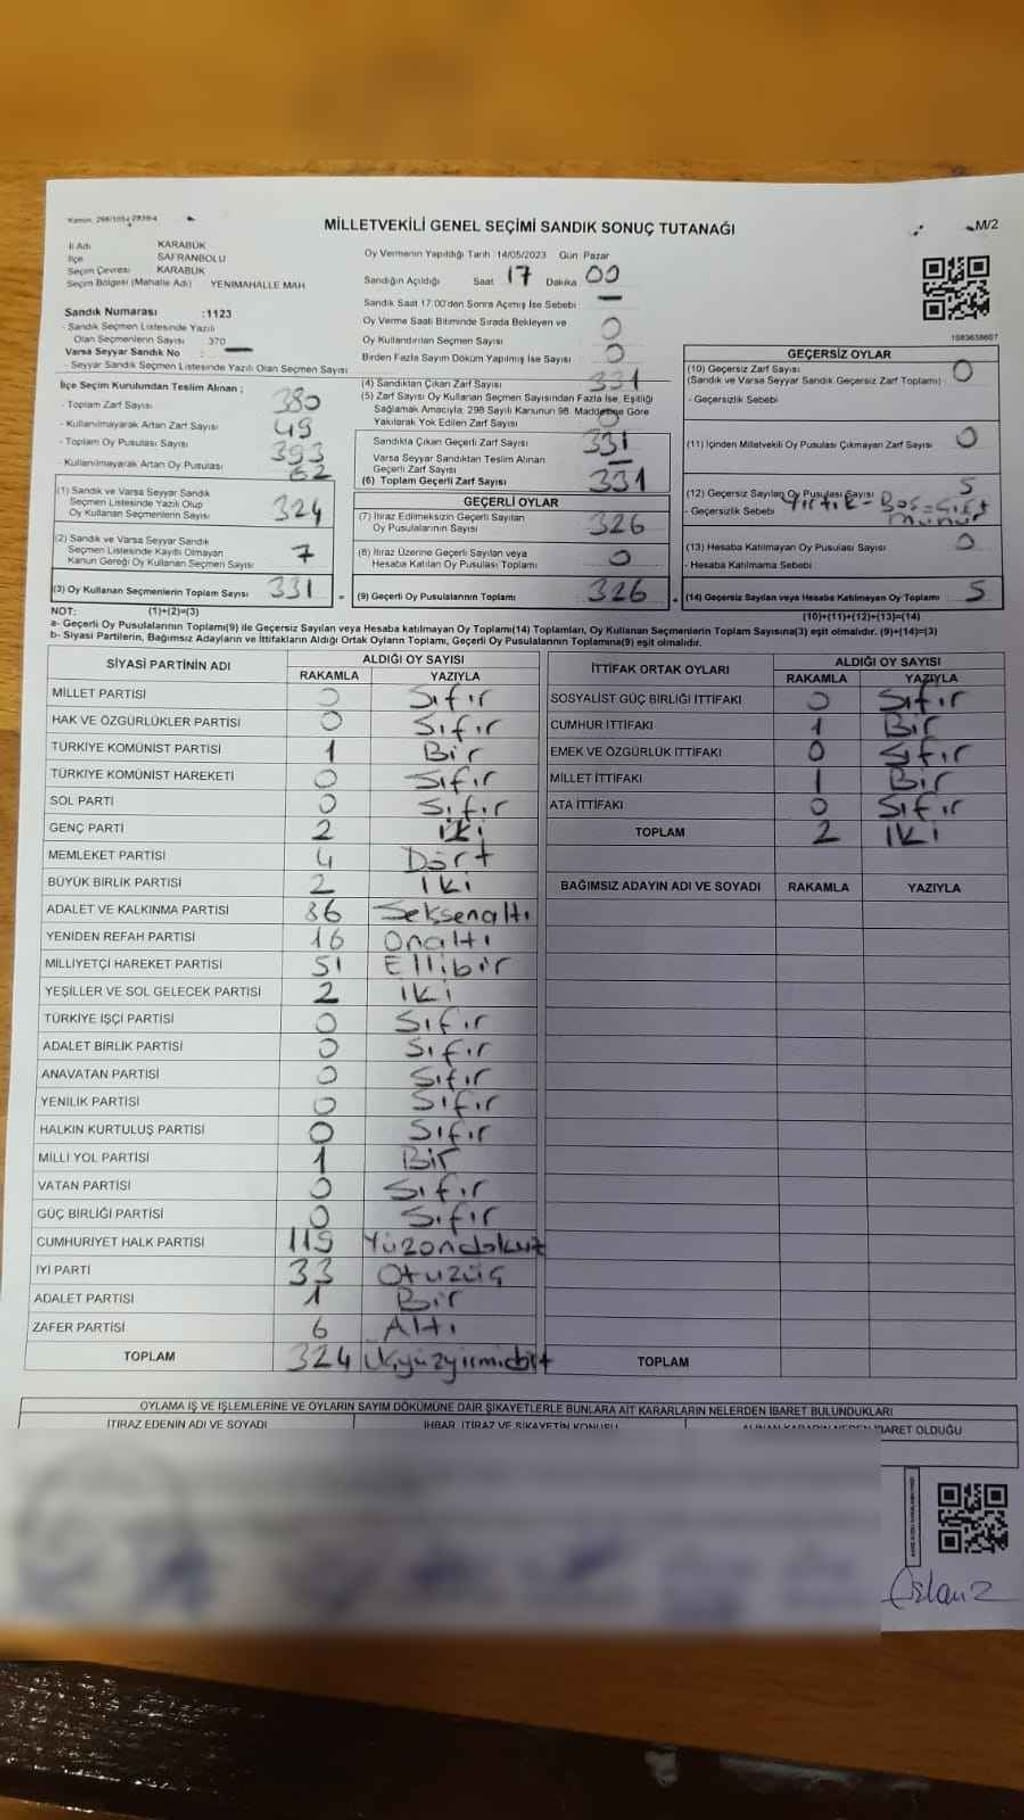 MİLLETVEKİLİ GENEL SEÇİMİ SANDIK SONUÇ TUTANAĞI
M/2
İl Adı KARABÜK
İlçe SAFRANBOLU
Seçim Çevresi KARABÜK
Seçim Bölgesi (Mahalle Adı) YENİMAHALLE MAH.
Oy Vermenin Yapıldığı Tarih :14/05/2023 Gün Pazar
Sandığın Açıldığı Saat 17 Dakika 00
Sandık Saat 17:00'den Sonra Açılmış İse Sebebi —
Oy Verme Saati Bitiminde Sırada Bekleyen ve
Oy Kullandırılan Seçmen Sayısı 0
Birden Fazla Sayım Döküm Yapılmış İse Sayısı 0
Sandık Numarası :1123
- Sandık Seçmen Listesinde Yazılı
Olan Seçmenlerin Sayısı 370
Varsa Seyyar Sandık No : —
- Seyyar Sandık Seçmen Listesinde Yazılı Olan Seçmen Sayısı
İlçe Seçim Kurulundan Teslim Alınan ;
- Toplam Zarf Sayısı 380
- Kullanılmayarak Artan Zarf Sayısı 49
- Toplam Oy Pusulası Sayısı 393
- Kullanılmayarak Artan Oy Pusulası 62
(1) Sandık ve Varsa Seyyar Sandık
Seçmen Listesinde Yazılı Olup
Oy Kullanan Seçmenlerin Sayısı 324
(2) Sandık ve Varsa Seyyar Sandık
Seçmen Listesinde Kayıtlı Olmayan
Kanun Gereği Oy Kullanan Seçmen Sayısı 7
(3) Oy Kullanan Seçmenlerin Toplam Sayısı 331
(4) Sandıktan Çıkan Zarf Sayısı 331
(5) Zarf Sayısı Oy Kullanan Seçmen Sayısından Fazla İse, Eşitliği
Sağlamak Amacıyla, 298 Sayılı Kanunun 98. Maddesine Göre
Yakılarak Yok Edilen Zarf Sayısı 0
Sandıkta Çıkan Geçerli Zarf Sayısı 331
Varsa Seyyar Sandıktan Teslim Alınan
Geçerli Zarf Sayısı —
(6) Toplam Geçerli Zarf Sayısı 331
GEÇERLİ OYLAR
(7) İtiraz Edilmeksizin Geçerli Sayılan
Oy Pusulalarının Sayısı 326
(8) İtiraz Üzerine Geçerli Sayılan veya
Hesaba Katılan Oy Pusulası Toplamı 0
(9) Geçerli Oy Pusulalarının Toplamı 326
1083638607
GEÇERSİZ OYLAR
(10) Geçersiz Zarf Sayısı 0
(Sandık ve Varsa Seyyar Sandık Geçersiz Zarf Toplamı)
- Geçersizlik Sebebi
(11) İçinden Milletvekili Oy Pusulası Çıkmayan Zarf Sayısı 0
(12) Geçersiz Sayılan Oy Pusulası Sayısı 5
- Geçersizlik Sebebi Yırtık - Boş
(13) Hesaba Katılmayan Oy Pusulası Sayısı 0
- Hesaba Katılmama Sebebi
(14) Geçersiz Sayılan veya Hesaba Katılmayan Oy Toplamı 5
NOT: (1)+(2)=(3) (10)+(11)+(12)+(13)=(14)
a- Geçerli Oy Pusulalarının Toplamı(9) ile Geçersiz Sayılan veya Hesaba katılmayan Oy Toplamı(14) Toplamları, Oy Kullanan Seçmenlerin Toplam Sayısına(3) eşit olmalıdır. (9)+(14)=(3)
b- Siyasi Partilerin, Bağımsız Adayların ve İttifakların Aldığı Ortak Oyların Toplamı, Geçerli Oy Pusulalarının Toplamına(9) eşit olmalıdır.
SİYASİ PARTİNİN ADI ALDIĞI OY SAYISI
RAKAMLA YAZIYLA
MİLLET PARTİSİ 0 Sıfır
HAK VE ÖZGÜRLÜKLER PARTİSİ 0 Sıfır
TÜRKİYE KOMÜNİST PARTİSİ 1 Bir
TÜRKİYE KOMÜNİST HAREKETİ 0 Sıfır
SOL PARTİ 0 Sıfır
GENÇ PARTİ 2 iki
MEMLEKET PARTİSİ 4 Dört
BÜYÜK BİRLİK PARTİSİ 2 iki
ADALET VE KALKINMA PARTİSİ 86 Seksenaltı
YENİDEN REFAH PARTİSİ 16 Onaltı
MİLLİYETÇİ HAREKET PARTİSİ 51 Ellibir
YEŞİLLER VE SOL GELECEK PARTİSİ 2 iki
TÜRKİYE İŞÇİ PARTİSİ 0 Sıfır
ADALET BİRLİK PARTİSİ 0 Sıfır
ANAVATAN PARTİSİ 0 Sıfır
YENİLİK PARTİSİ 0 Sıfır
HALKIN KURTULUŞ PARTİSİ 0 Sıfır
MİLLİ YOL PARTİSİ 1 Bir
VATAN PARTİSİ 0 Sıfır
GÜÇ BİRLİĞİ PARTİSİ 0 Sıfır
CUMHURİYET HALK PARTİSİ 119 Yüzondokuz
İYİ PARTİ 33 Otuzüç
ADALET PARTİSİ 1 Bir
ZAFER PARTİSİ 6 Altı
TOPLAM 324 Üçyüzyirmidört
İTTİFAK ORTAK OYLARI ALDIĞI OY SAYISI
RAKAMLA YAZIYLA
SOSYALİST GÜÇ BİRLİĞİ İTTİFAKI 0 Sıfır
CUMHUR İTTİFAKI 1 Bir
EMEK VE ÖZGÜRLÜK İTTİFAKI 0 Sıfır
MİLLET İTTİFAKI 1 Bir
ATA İTTİFAKI 0 Sıfır
TOPLAM 2 iki
BAĞIMSIZ ADAYIN ADI VE SOYADI RAKAMLA YAZIYLA
TOPLAM
OYLAMA İŞ VE İŞLEMLERİNE VE OYLARIN SAYIM DÖKÜMÜNE DAİR ŞİKAYETLERLE BUNLARA AİT KARARLARIN NELERDEN İBARET BULUNDUKLARI
İTİRAZ EDENİN ADI VE SOYADI İHBAR, İTİRAZ VE ŞİKAYETİN KONUSU ALINAN KARARIN NEDEN İBARET OLDUĞU